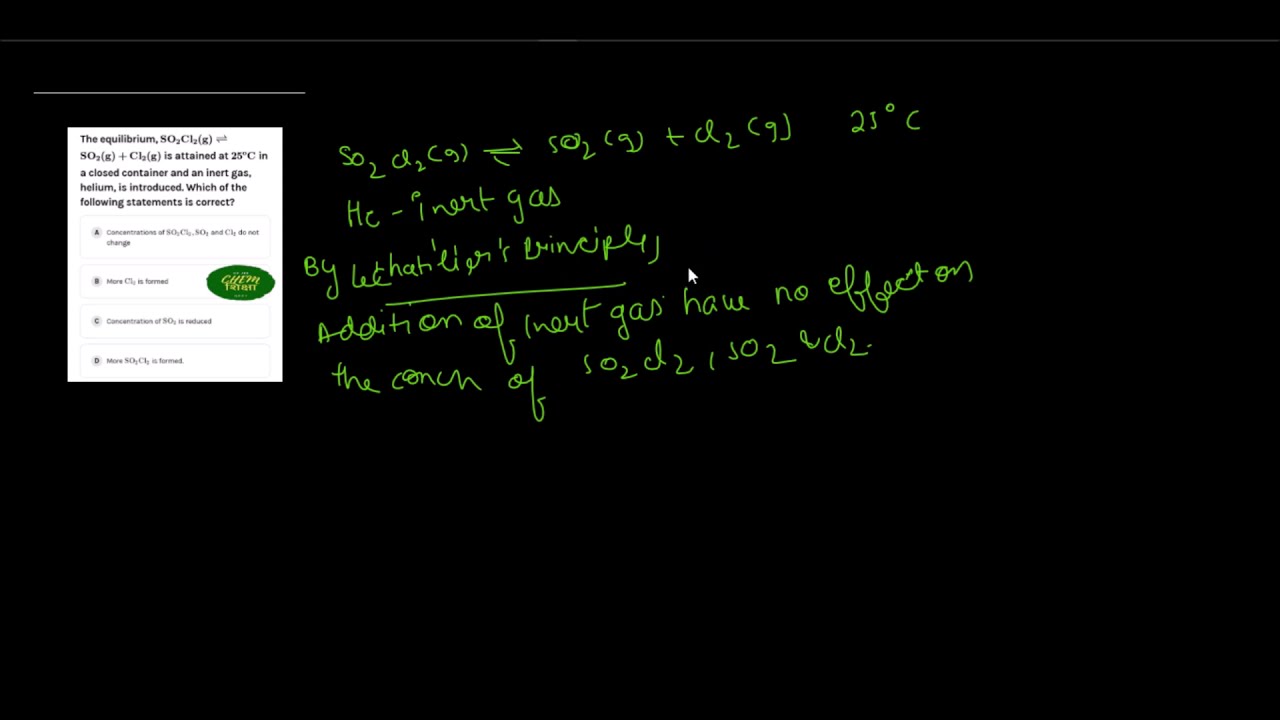 The equilibrium, SO₂Cl₂(g) ⇌
SO₂(g) + Cl₂(g) is attained at 25°C in
a closed container and an inert gas,
helium, is introduced. Which of the
following statements is correct?
A Concentrations of SO₂Cl₂, SO₂ and Cl₂ do not
change
B More Cl₂ is formed
CHEM
शिक्षा
C Concentration of SO₂ is reduced
D More SO₂Cl₂ is formed.
SO₂Cl₂(g) ⇌ SO₂(g) + Cl₂(g) 25°C
He - inert gas
By Lechatilier's Principle,
Addition of inert gas have no effect on
the concn of SO₂Cl₂, SO₂ & Cl₂.